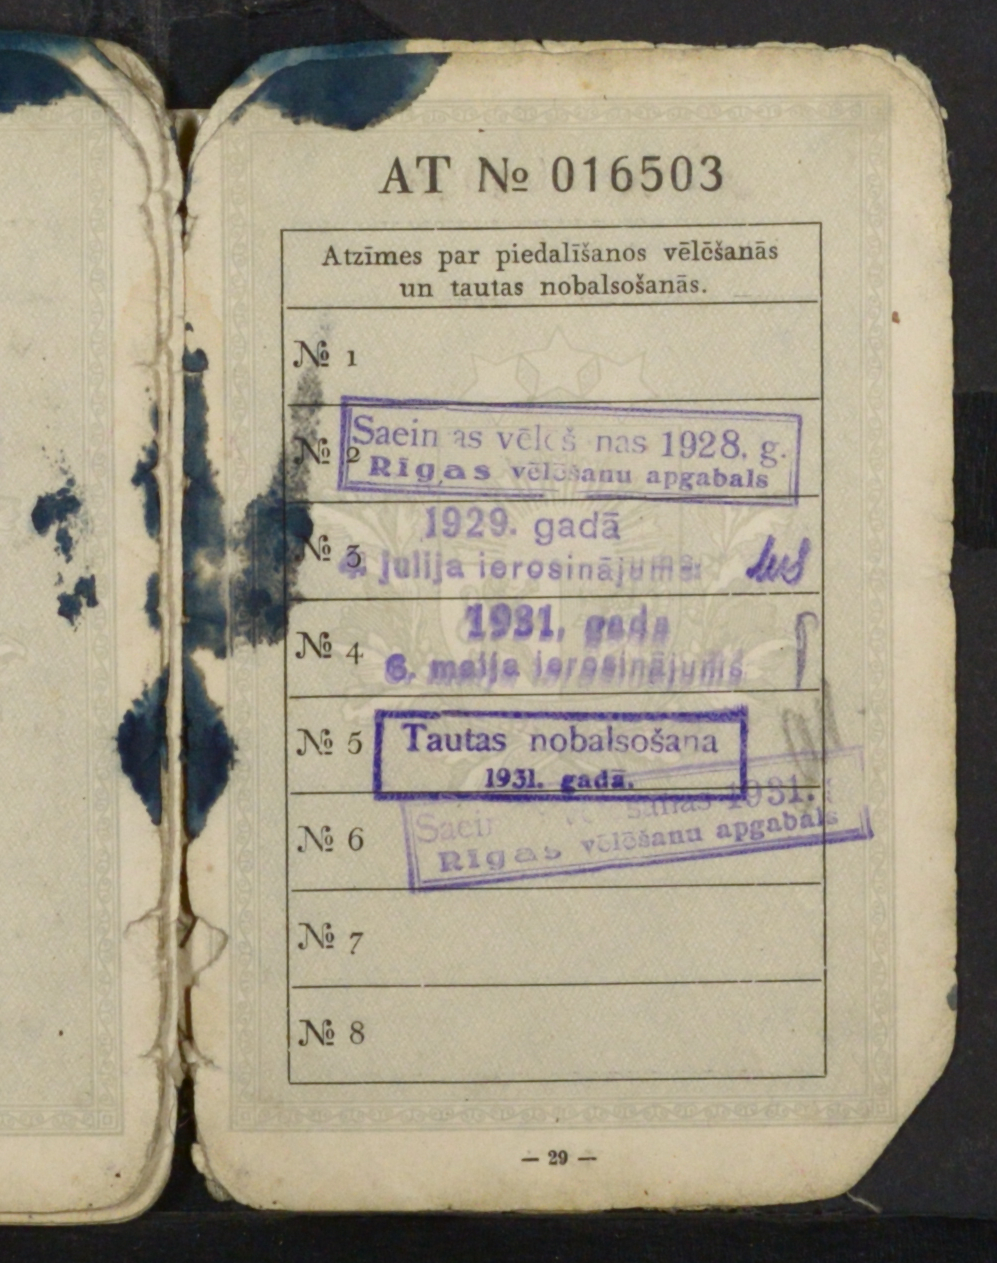 AT № 016503
Atzīmes par piedalīšanos vēlēšanās
un tautas nobalsošanās.
№ 1
№ 2
Saeimas vēlēšanas 1928. g.
Rīgas vēlēšanu apgabals
№ 3
1929. gadā
4. julija ierosinājums:
№ 4
1931. gada
6. maija ierosinājums
№ 5
Tautas nobalsošana
1931. gadā.
№ 6
Saeimas vēlēšanas 1931. g.
Rīgas vēlēšanu apgabals
№ 7
№ 8
— 29 —